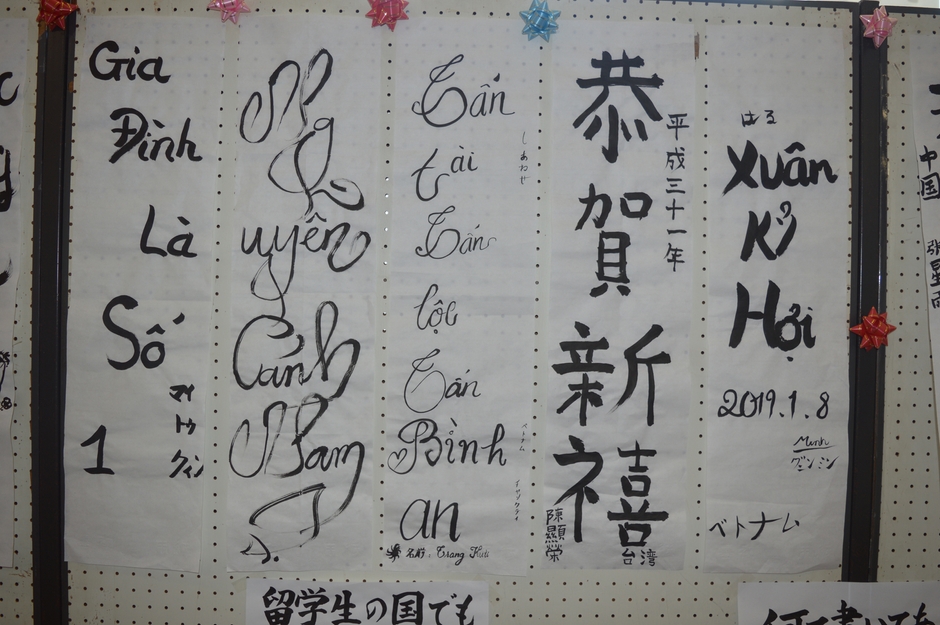 Gia
Đình
Là
Số
1
Ng
uyên
Cảnh
Nam
Tấn
tài
Tấn
lộc
Tấn
Bình
an
しあわせ
名前：Trang
恭賀新禧
平成三十一年
陳顯榮
台湾
はる
Xuân
Kỷ
Hợi
2019.1.8
Minh
グエンミン
ベトナム
中国
留学生の国でも